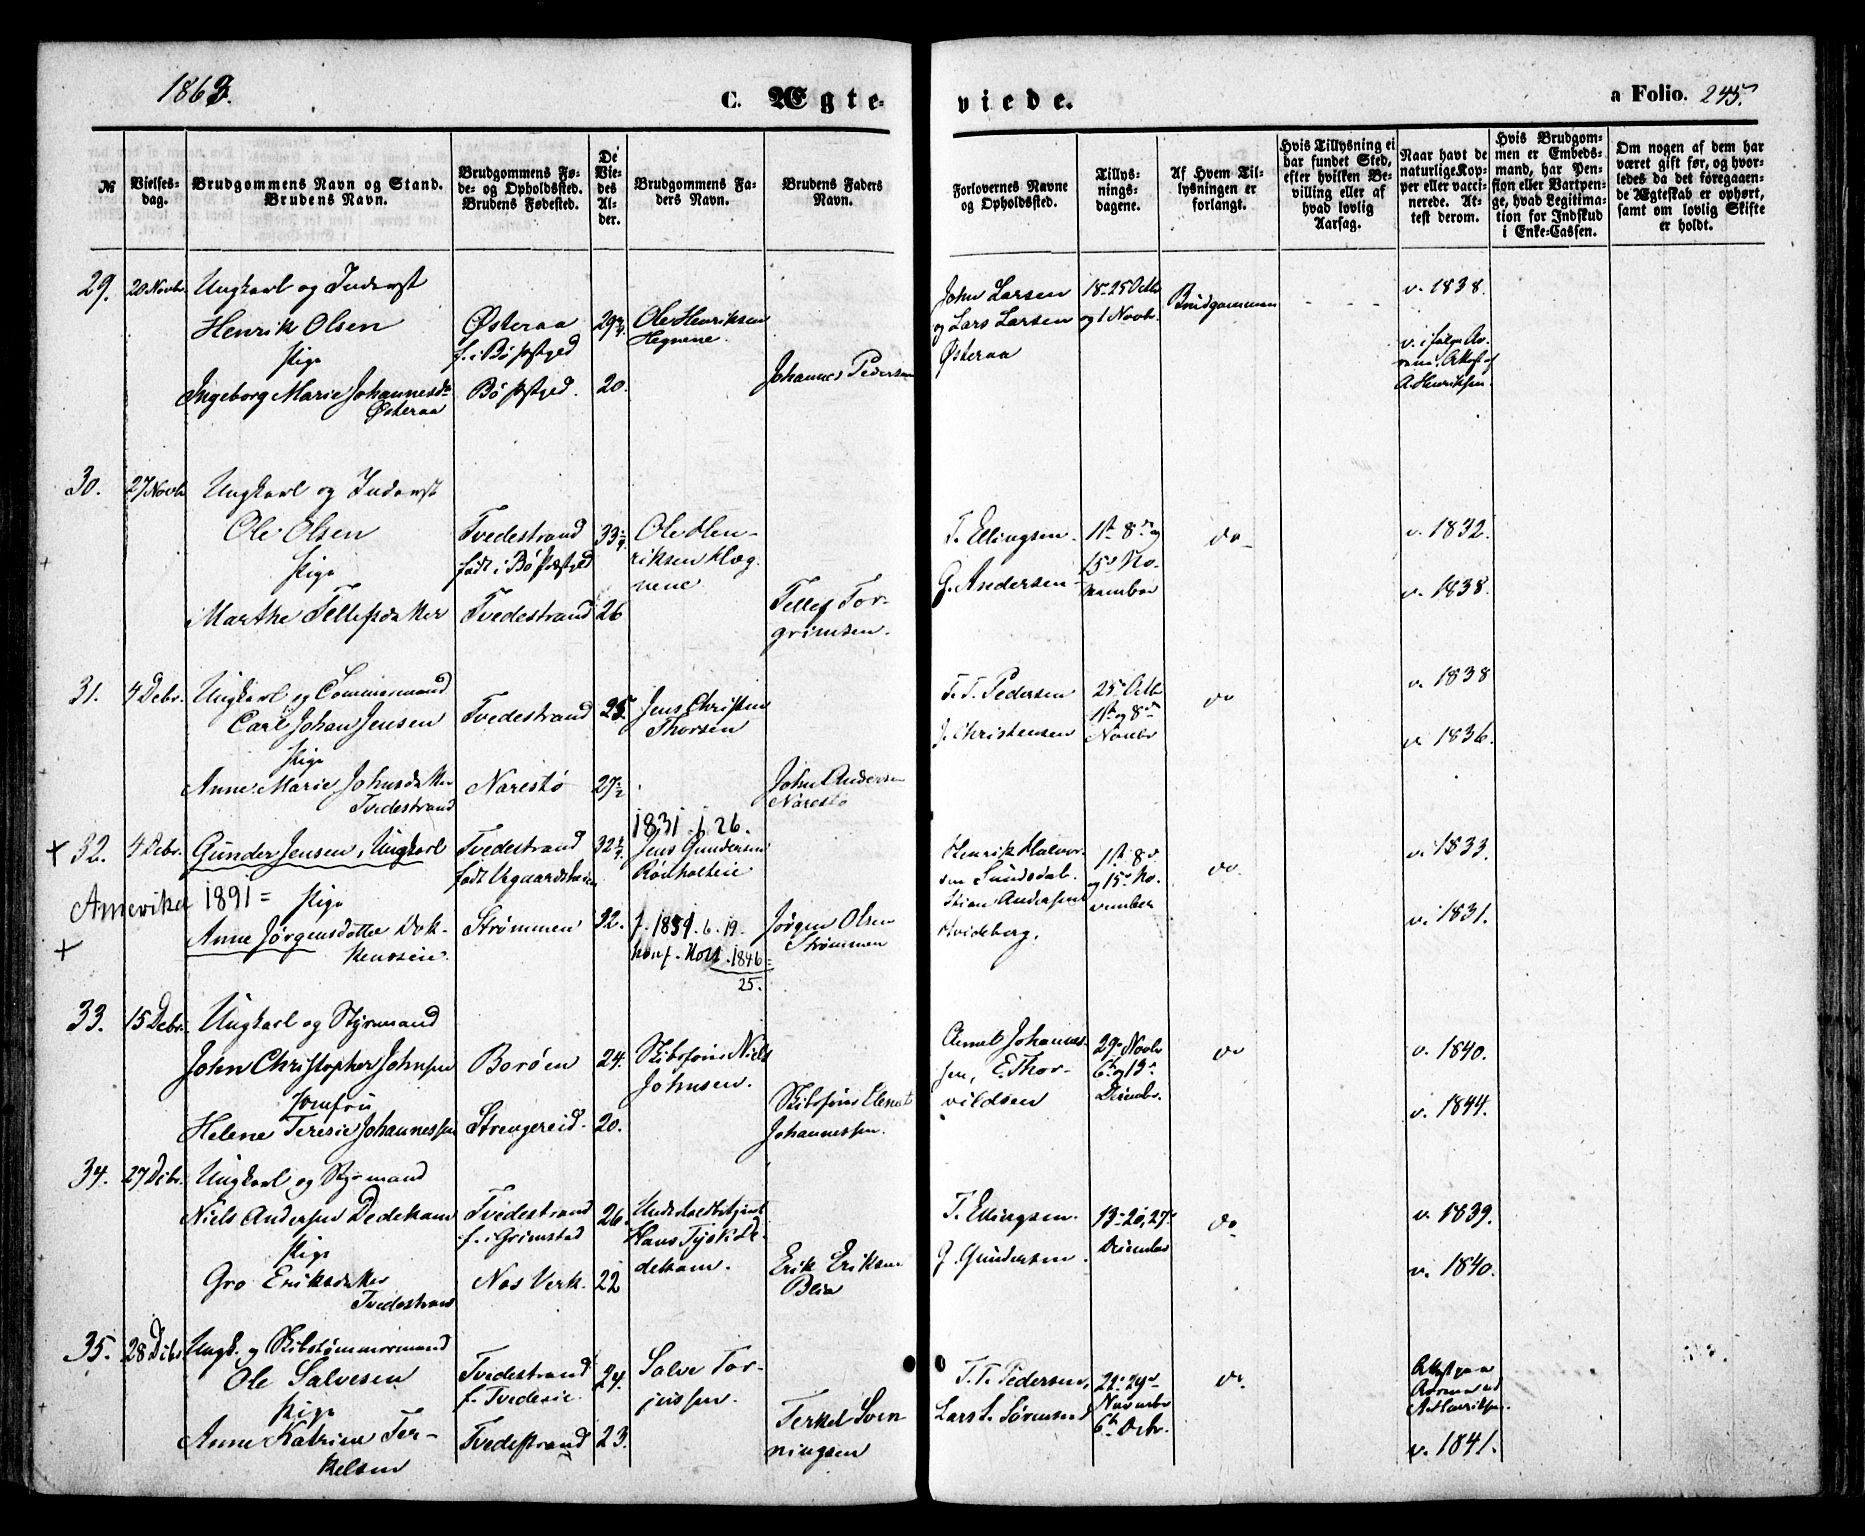 1863.
C. Ægte-
viede.
a Folio. 245.
№
Vielses-
dag.
Brudgommens Navn og Stand.
Brudens Navn.
Brudgommens Fø-
de- og Opholdssted.
Brudens Fødested.
De
Vie-
des
Al-
der.
Brudgommens Fa-
ders Navn.
Brudens Faders
Navn.
Forlovernes Navne
og Opholdssted.
Tillys-
nings-
dagene.
Af Hvem Til-
lysningen er
forlangt.
Hvis Tillysning ei
har fundet Sted,
efter hvilken Be-
villing eller af
hvad lovlig
Aarsag.
Naar havt de
naturlige Kop-
per eller vacci-
nerede. At-
test derom.
Hvis Brudgom-
men er Embeds-
mand, har Pen-
sion eller Vartpen-
ge, hvad Legitima-
tion for Indskud
i Enke-Cassen.
Om nogen af dem har
været gift før, og hvor-
ledes da det foregaaen-
de Ægteskab er ophørt,
samt om lovlig Skifte
er holdt.
29.
20 Novbr.
Ungkarl og Inderst
Henrik Olsen
Pige
Ingeborg Marie Johannesd.
Østeraa
Østeraa
f. i Bø Præstgjed
Bø Præstgjed.
29
20.
Ole Henriksen
Hegnene.
Johannes Pedersen
John Larsen
og Lars Larsen
Østeraa
18. 25 Octb
og 1 Novbr.
Brudgommen
v. 1838.
v. i følge
Attest af
A. Henriksen.
30.
27 Novb.
Ungkarl og Inderst
Ole Olsen
Pige
Marthe Tellefsdatter
Tvedestrand
født i Bø Præstgjed
Tvedestrand
33
26
Ole Hen-
riksen Hæg-
nene
Tellef Tor-
grimsen.
T. Ellingsen.
G. Andersen
1st 8de og
15de No-
vember
do
v. 1832.
v. 1838.
31.
4 Debr.
Ungkarl og Tømmermand
Carl Johan Jensen
Pige
Anne Marie Johnsdatter
Tvedestrand
Tvedestrand
Narestø
25
27
Jens Christen
Thorsen
John Andersen
Narestø
T. T. Pedersen
J. Christensen
25 Octb
1st og 8de
Novbr
do
v. 1838
v. 1836.
32.
4 Debr.
Gunder Jensen, Ungkarl
Amerika
1891 =
Pige
Anne Jørgensdatter Dok-
kenseie.
Tvedestrand
Strømmen
32
32.
1831. 1. 26.
Jens Gundersen
f. 1831. 6. 19.
konf. Holt. 1846 =
25.
Jørgen Olsen
Strømmen
Henrik Halvor-
sen Sundsdal.
Stian Andersen
Hvideberg.
1st 8de
og 15de No-
vember
do.
v. 1833.
v. 1831.
33.
15 Debr.
Ungkarl og Styrmand
John Christopher Johnsen
Jomfru
Helene Teresie Johannessen
Borøen
Strengereid.
24.
20.
Niels
Johnsen.
Johannessen.
Johannes-
sen, E. Thor-
vildsen
29 Novbr
6te og 13de
Decembr.
do
v. 1840.
v. 1844.
34.
27 Debr.
Ungkarl og Styrmand
Niels Andersen Dedekam
Pige
Gro Eriksdatter
Tvedestrand
Tvedestrand
f. i Grimstad
Nes Verk.
26.
22
Hans Tysk De-
dekam.
Erik Eriksen
T. Ellingsen.
G. Gundersen.
13de 20, 27de
December
do
v. 1839.
v. 1840.
35.
28 Debr.
Ungk. og Skibstømmermand
Ole Salvesen
Pige
Anne Katrine Ter-
kelsen
Tvedestrand
Tvedestrand
24.
23.
Salve Tor-
jussen.
Terkel Svен
ningsen
T. T. Pedersen,
Lars S. Sørensen
22de 29de
November
6te Decbr.
do.
A. Henriksen.
v. 1841.